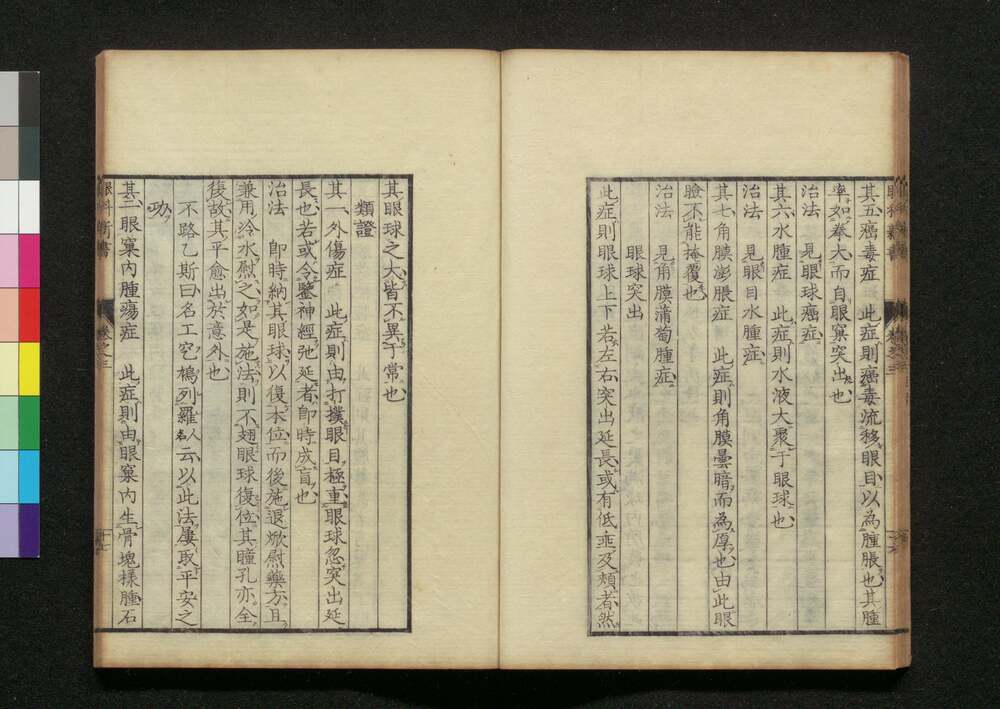 其五癌毒症　此症則癌毒流移眼目以為腫脹也其腫
率如拳大而自眼窠突出也
治法　見眼球癌症
其六水腫症　此症則水液大聚于眼球也
治法　見眼目水腫症
其七角膜澎脹症　此症則角膜曇暗而為厚也由此眼
瞼不能掩覆也
治法　見角膜蒲萄腫症
眼球突出
此症則眼球上下若左右突出延長或有低垂及頰者然
眼科新書
卷之三
其眼球之大皆不異于常也
類證
其一外傷症　此症則由打撲眼目極重眼球忽突出延
長也若或令鑒神經弛延者即時成盲也
治法　即時納其眼球以復本位而後施退焮慰藥方且
兼用冷水慰之如是施法則不翅眼球復位其瞳孔亦全
復故其平愈出於意外也
不路乙斯曰名工空鵨列羅人名云以此法屢取平安之
功
其二眼窠內腫瘍症　此症則由眼窠內生骨塊樣腫石
眼科新書
卷之三
十七